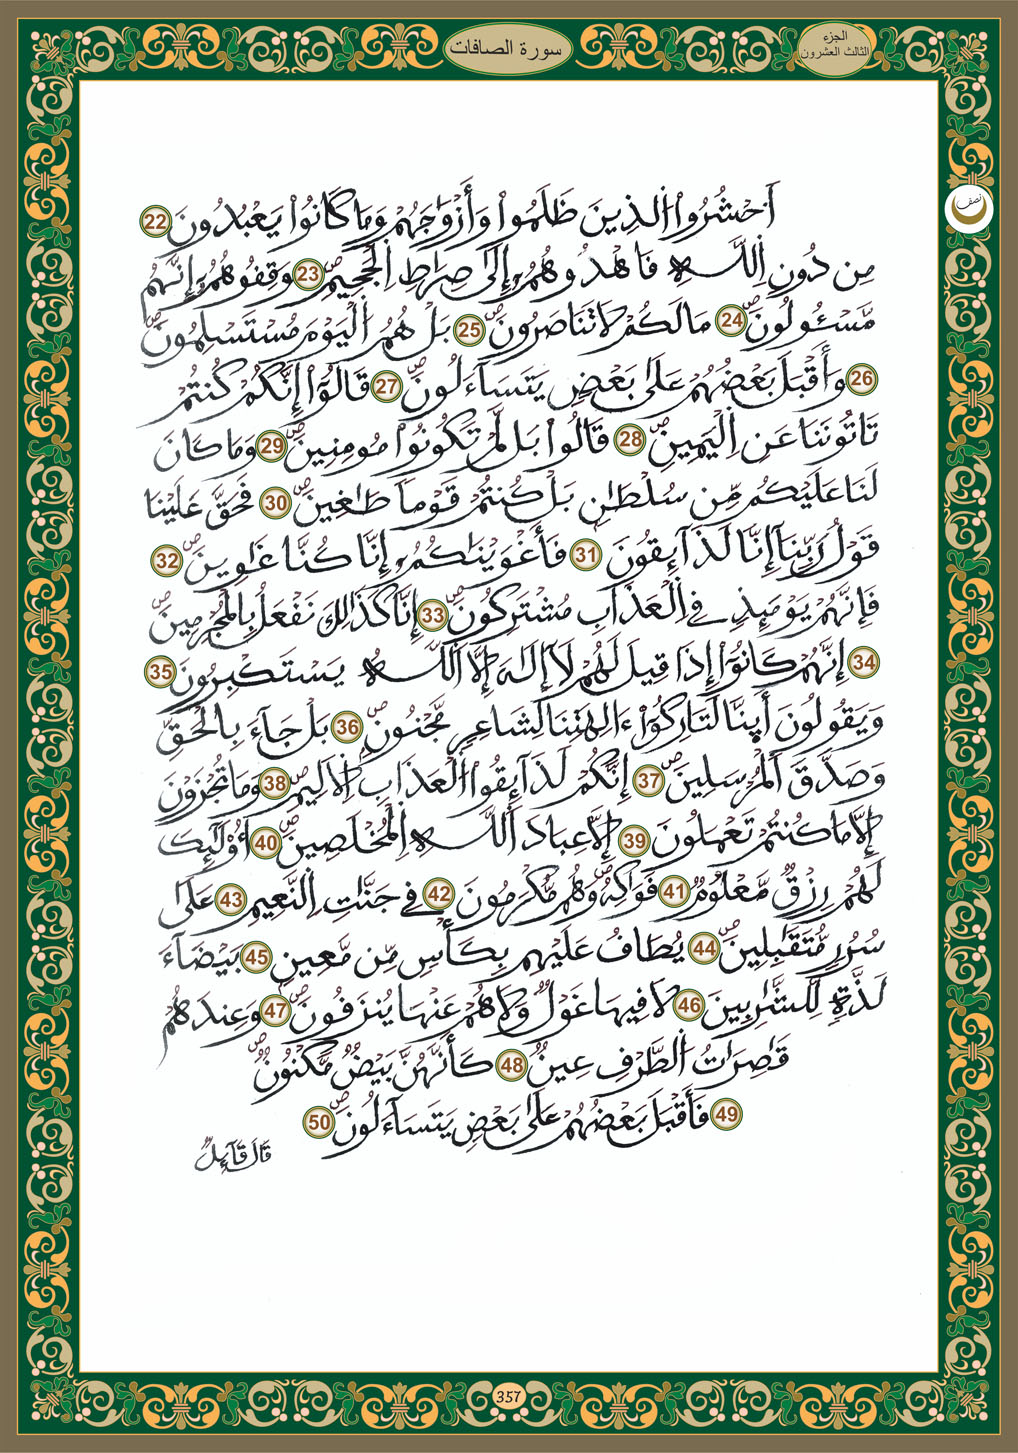 سورة الصافات
الجزء
الثالث العشرون
نصف
اَحْشُرُواْ اُلذِينَ ظَلَمُواْ وَأَزْوَٰجَهُمْ وَمَا كَانُواْ يَعْبُدُونَ 22
مِن دُونِ اِللَّهِ فَاهْدُوهُمُۥٓ إِلَىٰ صِرَٰطِ اِلْجَحِيمِ 23 وَقِفُوهُمُۥٓ إِنَّهُم
مَّسْـُٔولُونَ 24 مَا لَكُمْ لَا تَنَاصَرُونَ 25 بَلْ هُمُ اُلْيَوْمَ مُسْتَسْلِمُونَ
26 وَأَقْبَلَ بَعْضُهُمْ عَلَىٰ بَعْضٍ يَتَسَآءَلُونَ 27 قَالُوٓاْ إِنَّكُمْ كُنتُمْ
تَاتُونَنَا عَنِ اِلْيَمِينِ 28 قَالُواْ بَل لَّمْ تَكُونُواْ مُومِنِينَ 29 وَمَا كَانَ
لَنَا عَلَيْكُم مِّن سُلْطَٰنٍ بَلْ كُنتُمْ قَوْماً طَٰغِينَ 30 فَحَقَّ عَلَيْنَا
قَوْلُ رَبِّنَآ إِنَّا لَذَآئِقُونَ 31 فَأَغْوَيْنَٰكُمُۥٓ إِنَّا كُنَّا غَٰوِينَ 32
فَإِنَّهُمْ يَوْمَئِذٍ فِي اِلْعَذَابِ مُشْتَرِكُونَ 33 إِنَّا كَذَٰلِكَ نَفْعَلُ بِالْمُجْرِمِينَ
34 إِنَّهُمْ كَانُوٓاْ إِذَا قِيلَ لَهُمْ لَآ إِلَٰهَ إِلَّا اَللَّهُ يَسْتَكْبِرُونَ 35
وَيَقُولُونَ أَئِنَّا لَتَارِكُوٓاْ ءَالِهَتِنَا لِشَاعِرٍ مَّجْنُونٍ 36 بَلْ جَآءَ بِالْحَقِّ
وَصَدَّقَ اَلْمُرْسَلِينَ 37 إِنَّكُمْ لَذَآئِقُواْ اُلْعَذَابِ اِلْأَلِيمِ 38 وَمَا تُجْزَوْنَ
إِلَّا مَا كُنتُمْ تَعْمَلُونَ 39 إِلَّا عِبَادَ اَللَّهِ اِلْمُخْلَصِينَ 40 أُوْلَٰٓئِكَ
لَهُمْ رِزْقٌ مَّعْلُومٌ 41 فَوَٰكِهُ وَهُم مُّكْرَمُونَ 42 فِي جَنَّٰتِ اِلنَّعِيمِ 43 عَلَىٰ
سُرُرٍ مُّتَقَٰبِلِينَ 44 يُطَافُ عَلَيْهِم بِكَأْسٍ مِّن مَّعِينٍ 45 بَيْضَآءَ
لَذَّةٍ لِّلشَّٰرِبِينَ 46 لَا فِيهَا غَوْلٌ وَلَا هُمْ عَنْهَا يُنزَفُونَ 47 وَعِندَهُمْ
قَٰصِرَٰتُ اُلطَّرْفِ عِينٌ 48 كَأَنَّهُنَّ بَيْضٌ مَّكْنُونٌ
49 فَأَقْبَلَ بَعْضُهُمْ عَلَىٰ بَعْضٍ يَتَسَآءَلُونَ 50
قَالَ قَآئِلٌ
357